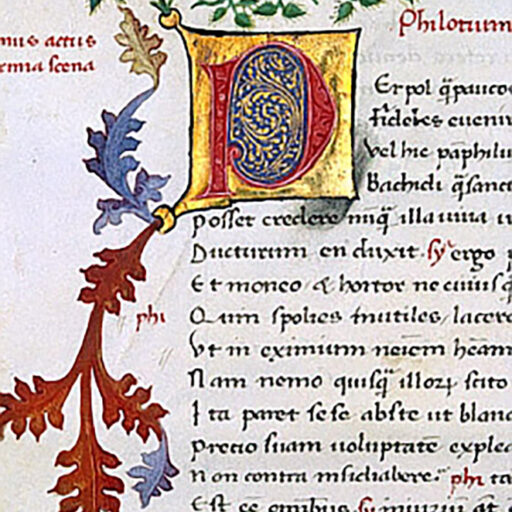 mus actus
Philotium
emia scena
P
Er pol q̃ paucos
fideles eueni
vel hic pãphilu
Bachidi q̃ sanct
posset credere nũq̃ illa uiua u
Ducturum en duxit . sy ergo p
Et moneo & hortor ne cuiusq̃
phi Quin spolies mutiles lacere
Vt in eximium neiem heam
Nam nemo quisq̃ illoꝝ scito
Ita paret sese abste ut bland
precio suam uoluptatẽ explea
non contra insidiabere. phi ta
Est ee omnibus sy